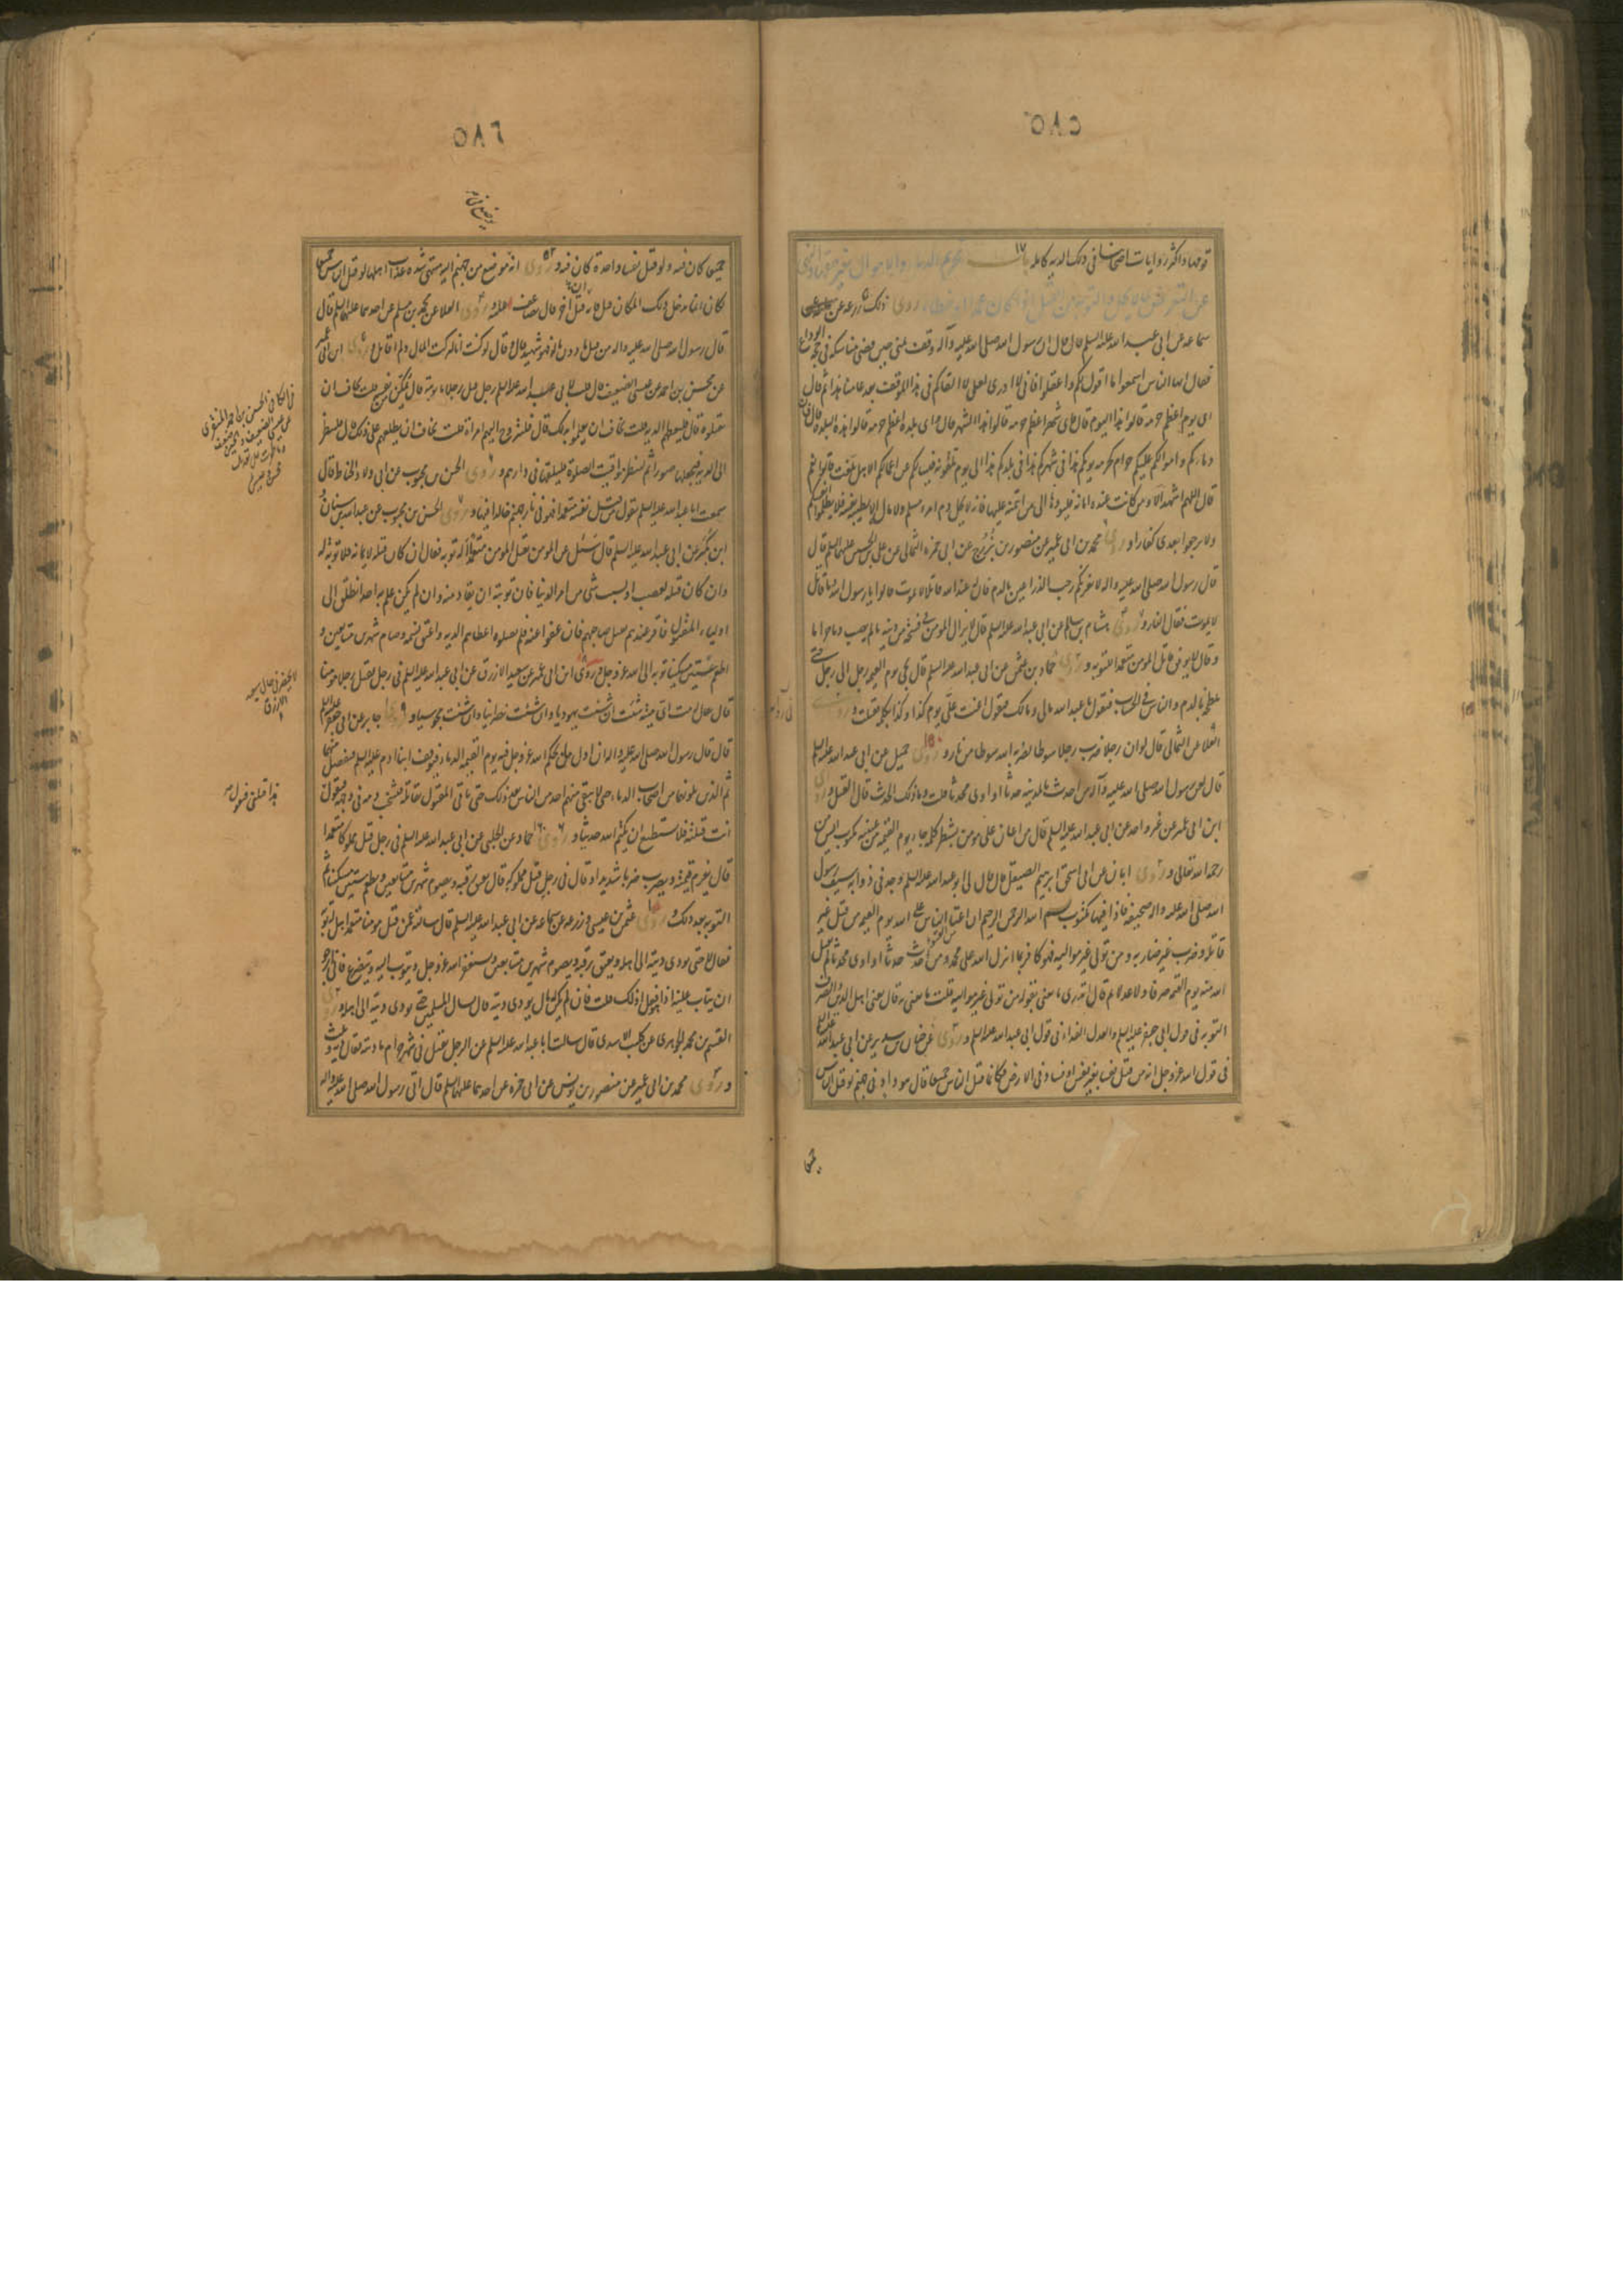 ٥٨٥
قال
سماعه عن ابى عبد الله عليه السلم قال ان رسول الله صلى الله عليه وآله وقف بمنى حين قضى مناسكه فى حجة الوداع
فقال ايها الناس اسمعوا ما اقول لكم واعقلوا فانى لا ادرى لعلى لا القاكم فى هذا الموقف بعد عامنا هذا ثم قال
اى يوم اعظم حرمة قالوا هذا اليوم قال فاى شهر اعظم حرمة قالوا هذا الشهر قال فاى بلدة اعظم حرمة قالوا هذه البلدة قال فان
دماءكم واموالكم عليكم حرام كحرمة يومكم هذا فى شهركم هذا فى بلدكم هذا الى يوم تلقونه فيسالكم عن اعمالكم الا هل بلغت قالوا نعم
قال اللهم اشهد الا ومن كانت عنده امانة فليؤدها الى من ائتمنه عليها فانه لا يحل دم امرء مسلم ولا ماله الا بطيبة نفسه فلا تظلموا انفسكم
ولا ترجعوا بعدى كفارا و روى محمد بن ابى عمير عن منصور بن بزرج عن ابى حمزة الثمالى عن على بن الحسين عليهما السلم قال
قال رسول الله صلى الله عليه واله لا يغرنكم رحب الذراعين بالدم فان له عند الله قاتلا لا يموت قالوا يا رسول الله وما قاتل
لا يموت فقال النار و روى هشام بن سالم عن ابى عبد الله عليه السلم قال لا يزال المومن فى فسحة من دينه ما لم يصب دما حراما
وقال لا يوفق قاتل المومن متعمدا للتوبة و روى حماد بن عثمن عن ابى عبد الله عليه السلم قال يجىء يوم القيمه رجل الى رجل حتى
يلطخه بالدم والناس فى الحساب فيقول يا عبد الله مالى ومالك فيقول اعنت على يوم كذا وكذا بكلمة فقتلت و روى
العلا عن الثمالى قال لو ان رجلا ضرب رجلا سوطا لضربه الله سوطا من نار و روى جميل عن ابى عبد الله عليه السلم
قال لعن رسول الله صلى الله عليه وآله من احدث بالمدينه حدثا او اوى محدثا قلت وما ذلك الحدث قال القتل و روى
ابن ابى عمير عن غير واحد عن ابى عبد الله عليه السلم قال من اعان على مومن بشطر كلمة جاء يوم القيمة بين عينيه مكتوب ايس من
رحمة الله تعالى و روى ابان عن ابى اسحق ابرهيم الصيقل قال قال لى ابو عبد الله عليه السلم وجد فى ذوابة سيف رسول
الله صلى الله عليه واله صحيفة فاذا فيها مكتوب بسم الله الرحمن الرحيم ان اعتى الناس على الله يوم القيمه من قتل غير
قاتله وضرب غير ضاربه ومن تولى غير مواليه فهو كافر بما انزل الله على محمد ومن احدث حدثا او اوى محدثا لم يقبل
الله منه يوم القيمه صرفا ولا عدلا ثم قال تدرى ما يعنى بقوله من تولى غير مواليه قلت ما يعنى به قال يعنى اهل الدين والصرف
التوبة فى قول ابى جعفر عليه السلم والعدل الفداء فى قول ابى عبد الله عليه السلم و روى عن حنان بن سدير عن ابى عبد الله عليه السلم
فى قول الله عز وجل انه من قتل نفسا بغير نفس او فساد فى الارض فكانما قتل الناس جميعا قال هو واد فى جهنم لو قتل الناس
٥٨٦
جميعا كان فيه ولو قتل نفسا واحدة كان فيه و روى انه موضع من جهنم اليه منتهى شدة عذاب اهلها لو قتل الناس جميعا
لكان انما يدخل ذلك المكان قيل فانه قتل اخر قال يضاعف عليه و روى العلا عن محمد بن مسلم عن احدهما عليهما السلم قال
قال رسول الله صلى الله عليه واله من قتل دون ماله فهو شهيد قال وقال لو كنت انا لتركت المال ولم اقاتل و روى ابن ابى عمير
عن محسن بن احمد عن عيسى الضعيف قال قلت لابى عبد الله عليه السلم رجل قتل رجلا ما توبته قال يمكن من نفسه قلت يخاف ان
يقتلوه قال فليعطهم الدية قلت يخاف ان يعلموا بذلك قال فليتزوج اليهم امراة قلت يخاف ان تطلعهم على ذلك قال فلينظر
الى الدية فيجعلها صررا ثم لينظر مواقيت الصلوة فليلقها فى دارهم و روى الحسن بن محبوب عن ابى ولاد الحناط قال
سمعت ابا عبد الله عليه السلم يقول من قتل نفسه متعمدا فهو فى نار جهنم خالدا فيها و روى الحسن بن محبوب عن عبد الله بن سنان و
ابن بكير عن ابى عبد الله عليه السلم قال سئل عن المومن يقتل المومن متعمدا له توبة فقال ان كان قتله لايمانه فلا توبة له
وان كان قتله لغضب او لسبب شىء من امر الدنيا فان توبته ان يقاد منه وان لم يكن علم به احد انطلق الى
اولياء المقتول فاقر عندهم بقتل صاحبهم فان عفوا عنه فلم يقتلوه اعطاهم الدية واعتق نسمة وصام شهرين متتابعين و
اطعم ستين مسكينا توبة الى الله عز وجل و روى ابن ابى عمير عن سعيد الازرق عن ابى عبد الله عليه السلم فى رجل يقتل رجلا مومنا
قال يقال له مت اى ميتة شئت ان شئت يهوديا وان شئت نصرانيا وان شئت مجوسيا و روى جابر عن ابى جعفر عليه السلم
قال قال رسول الله صلى الله عليه واله ان اول ما يحكم الله عز وجل فيه يوم القيمة الدماء فيوقف ابنا ادم عليه السلم فيفصل بينهما
ثم الذين يلونهما من اصحاب الدماء حتى لا يبقى منهم احد من الناس بعد ذلك حتى ياتى المقتول بقاتله فيشخب دمه فى وجهه فيقول
انت قتلته فلا يستطيع ان يكتم الله حديثا و روى حماد عن الحلبى عن ابى عبد الله عليه السلم فى رجل قتل مملوكا متعمدا
قال يغرم قيمته ويضرب ضربا شديدا وقال فى رجل قتل مملوكه قال يعتق رقبة ويصوم شهرين متتابعين ويطعم ستين مسكينا ثم
التوبة بعد ذلك و روى عثمن بن عيسى و زرعه عن سماعه عن ابى عبد الله عليه السلم قال سالته عمن قتل مومنا متعمدا هل له توبة
فقال لا حتى يودى ديته الى اهله ويعتق رقبة ويصوم شهرين متتابعين ويستغفر الله عز وجل ويتوب اليه ويتضرع فانى ارجو
ان يتاب عليه اذا فعل ذلك قلت فان لم يكن له مال يودى ديته قال يسال المسلمين حتى يودى ديته الى اهله و روى
القسم بن محمد الجوهرى عن كليب الاسدى قال سالت ابا عبد الله عليه السلم عن الرجل يقتل فى شهر حرام ما ديته فقال دية وثلث
و روى محمد بن ابى عمير عن منصور بن يونس عن ابى حمزه عن احدهما عليهما السلم قال اتى رسول الله صلى الله عليه واله